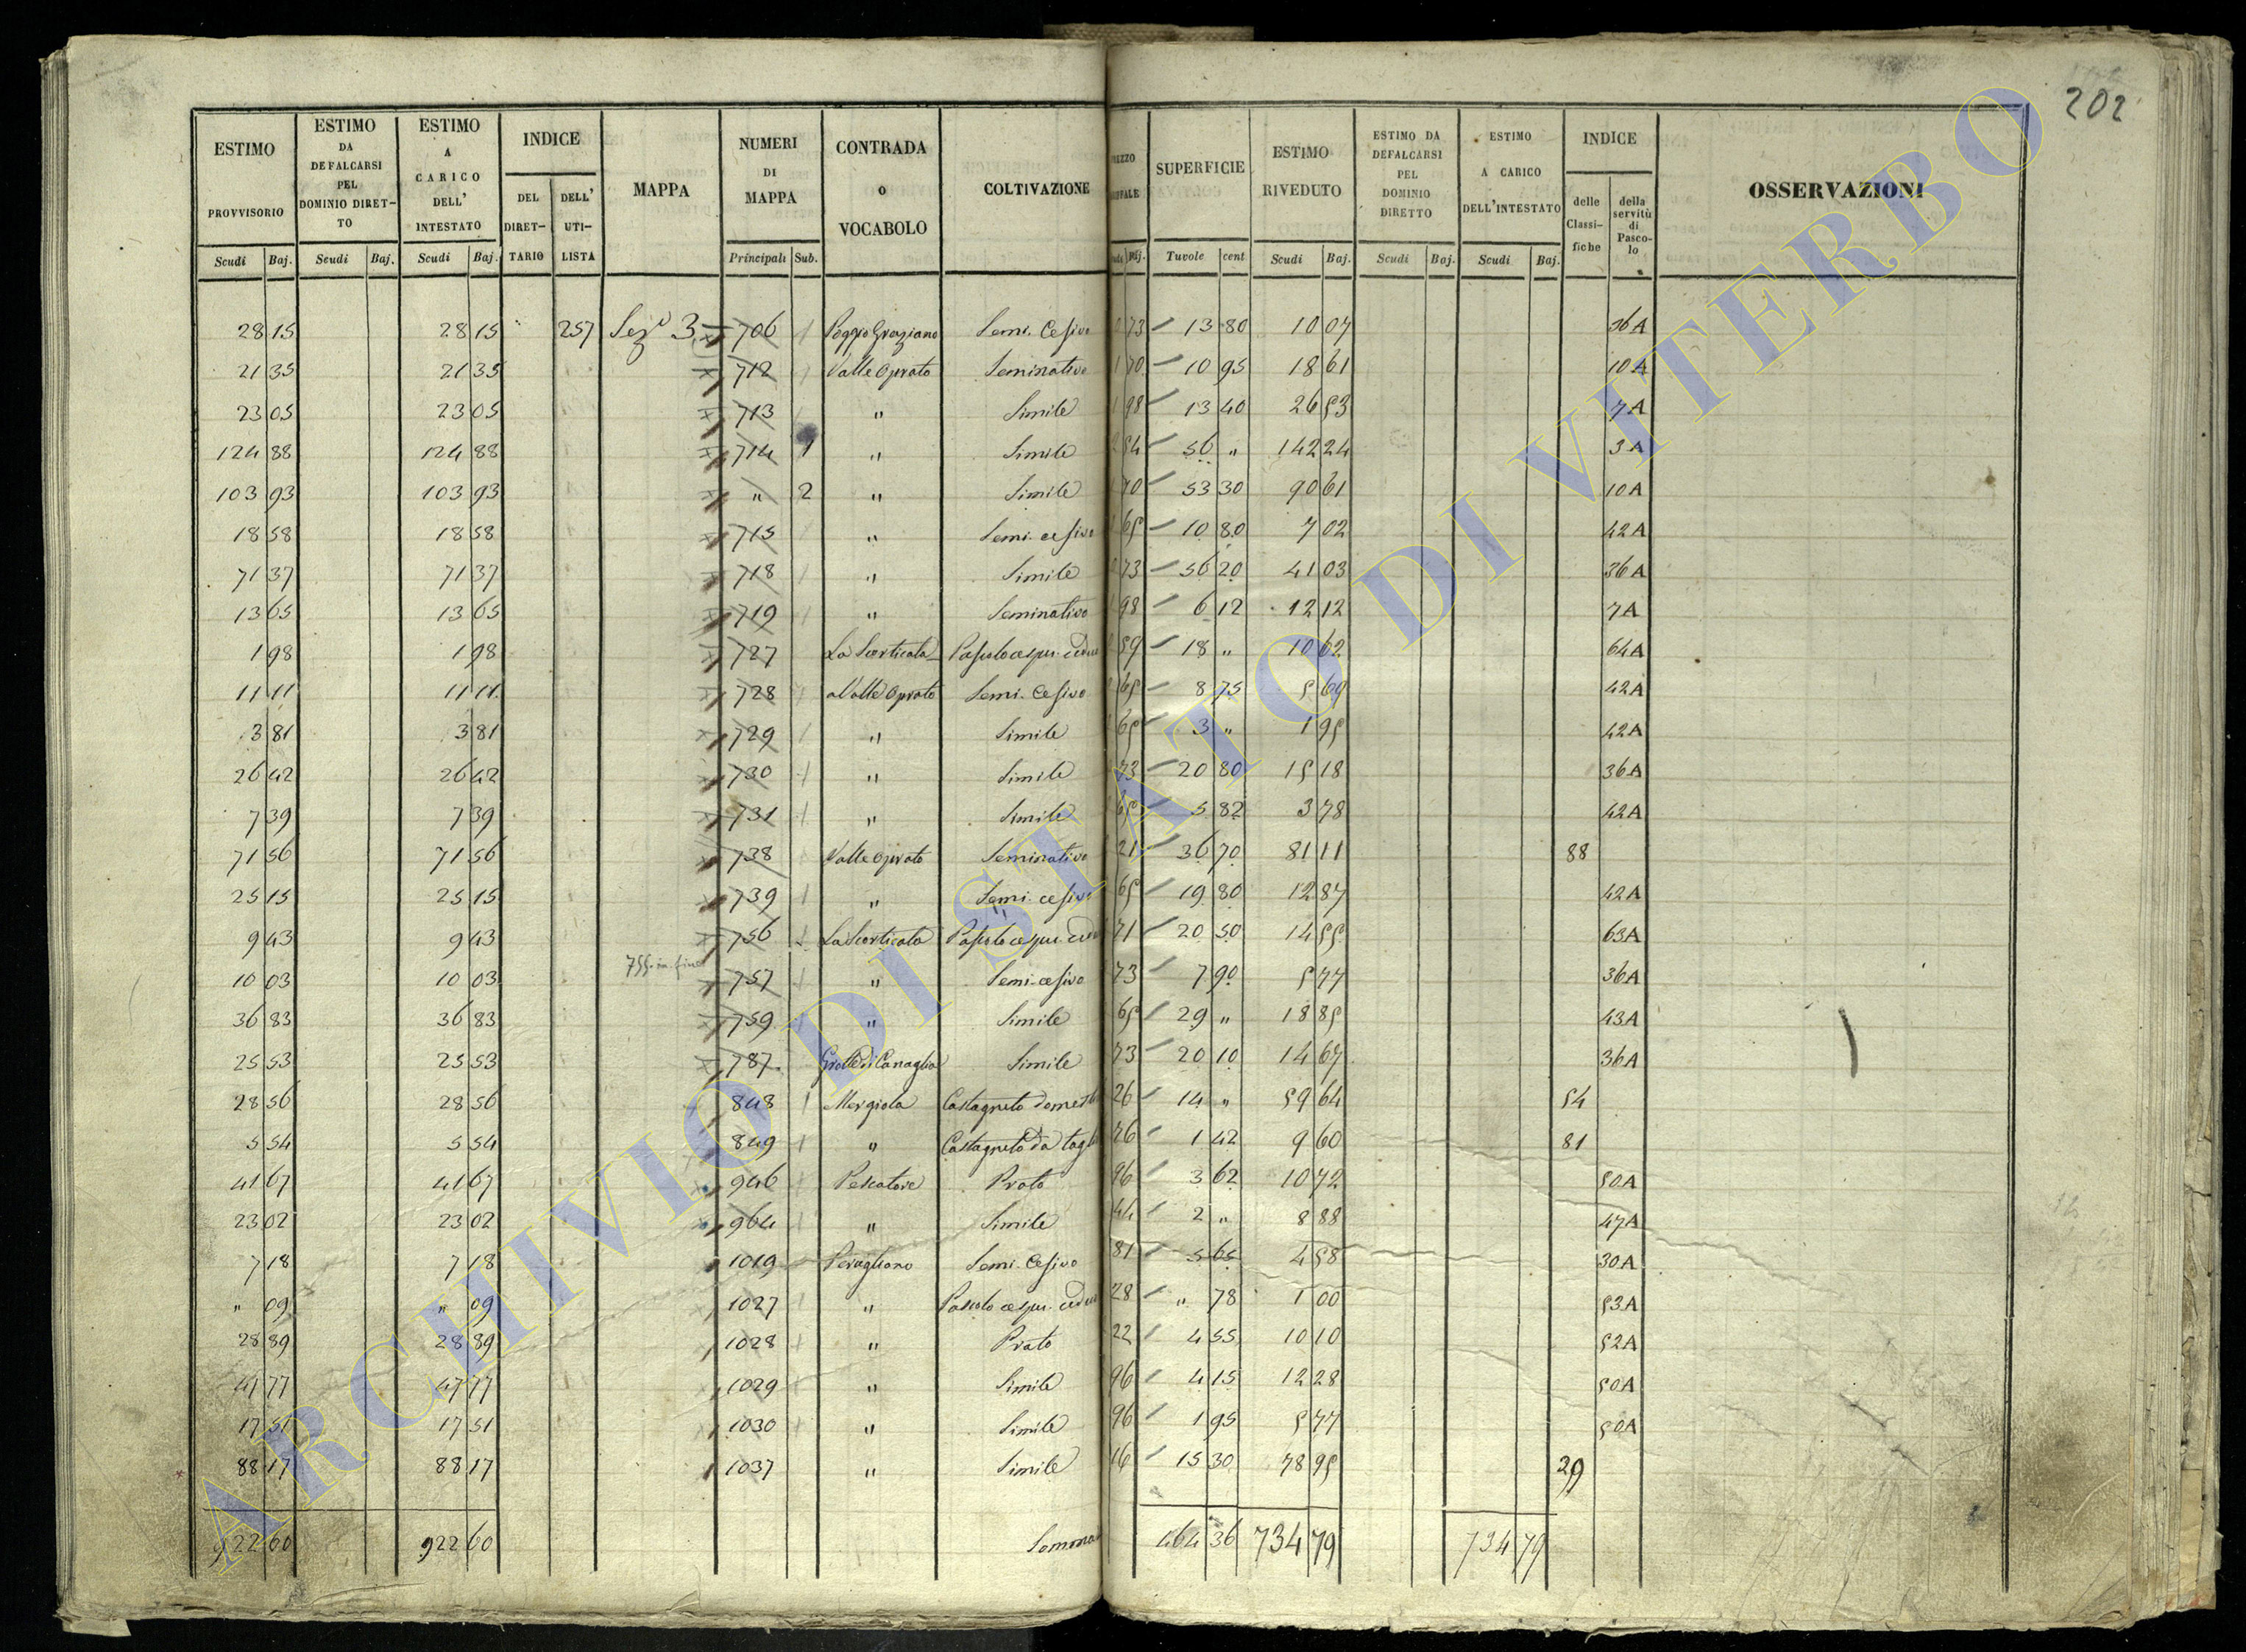 202
ESTIMO PROVVISORIO
ESTIMO DA DEFALCARSI PEL DOMINIO DIRET-TO
ESTIMO A CARICO DELL' INTESTATO
INDICE
DEL DIRET-TARIO
DELL' UTI-LISTA
MAPPA
NUMERI DI MAPPA
CONTRADA o VOCABOLO
COLTIVAZIONE
SUPERFICIE
ESTIMO RIVEDUTO
ESTIMO DA DEFALCARSI PEL DOMINIO DIRETTO
ESTIMO A CARICO DELL'INTESTATO
INDICE
delle Classi-fiche
della servitù di Pasco-lo
OSSERVAZIONI
Scudi Baj. Scudi Baj. Scudi Baj. Principali Sub. Baj. Tavole cent Scudi Baj. Scudi Baj. Scudi Baj.
28 15 28 15 257 Sez.e 3. 706 Poggio Graziano Semi. Cesivo 73 13 80 10 07 36A
21 35 21 35 712 Valle Oprato Seminativo 1 70 10 95 18 61 10A
23 05 23 05 713 " Simile 1 98 13 40 26 53 7A
124 88 124 88 714 1 " Simile 2 54 56 " 142 24 3A
103 93 103 93 " 2 " Simile 1 70 53 30 90 61 10A
18 58 18 58 715 " Semi. cesivo 65 10 80 7 02 42A
71 37 71 37 718 " Simile 73 56 20 41 03 36A
13 65 13 65 719 " Seminativo 1 98 6 12 12 12 7A
1 98 1 98 727 La Scorticata Pascolo cespu. ceduo 59 18 " 10 62 64A
11 11 11 11 728 a Valle Oprato Semi. Cesivo 65 8 75 5 69 42A
3 81 3 81 729 " Simile 65 3 " 1 95 42A
26 42 26 42 730 " Simile 73 20 80 15 18 36A
7 39 7 39 731 " Simile 65 5 82 3 78 42A
71 56 71 56 738 Valle Oprato Seminativo 21 36 70 81 11 88
25 15 25 15 739 " Semi. cesivo 65 19 80 12 87 42A
9 43 9 43 756 La Scorticata Pascolo cespu. ceduo 71 20 50 14 55 63A
755. in fine
10 03 10 03 757 " Semi-cesivo 73 7 90 5 77 36A
36 83 36 83 759 " Simile 65 29 " 18 85 43A
25 53 25 53 787 Grotte di Canaglia Simile 73 20 10 14 67 36A
28 56 28 56 848 Mergiola Castagneto domest 26 14 " 59 64 54
5 54 5 54 849 " Castagneto da tagl 76 1 42 9 60 81
41 67 41 67 946 Pescatore Prato 96 3 62 10 72 50A
23 02 23 02 964 " Simile 44 2 " 8 88 47A
7 18 7 18 1019 Perugliano Semi. Cesivo 81 5 65 4 58 30A
" 09 " 09 1027 " Pascolo cespu. ceduo 28 " 78 1 00 53A
28 89 28 89 1028 " Prato 22 4 55 10 10 52A
47 77 47 77 1029 " Simile 96 4 15 12 28 50A
17 51 17 51 1030 " Simile 96 1 95 5 77 50A
88 17 88 17 1037 " Simile 16 15 30 78 95 29
922 60 922 60 Somma 464 36 734 79 734 79
ARCHIVIO DI STATO DI VITERBO